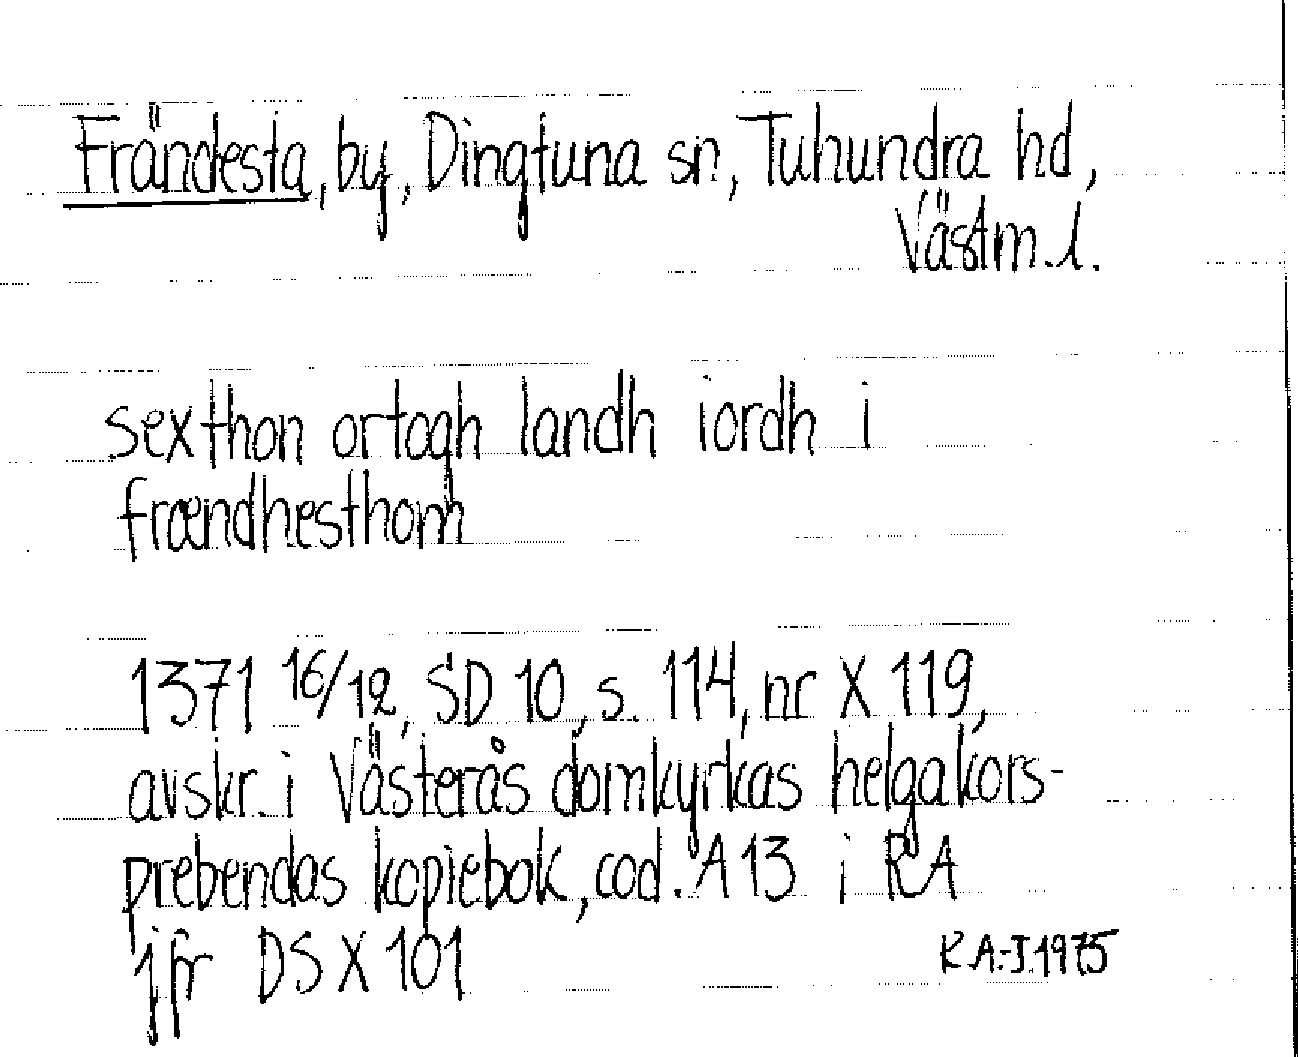 Frändesta, by, Dingtuna sn, Tuhundra hd,
Västm.l.
sexthon ortogh landh iordh i
frændhesthom
1371 16/12, SD 10, s. 114, nr X 119,
avskr. i Västerås domkyrkas helgakors-
prebendas kopiebok, cod. A 13 i RA
jfr DS X 101
R.A.-J. 1975